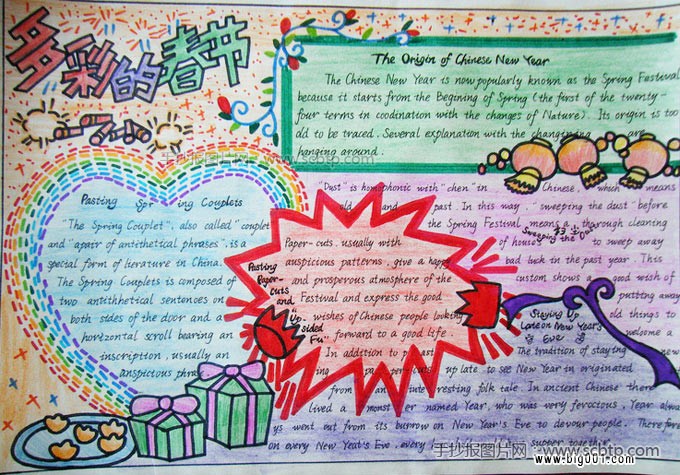 多彩的春节
The Origin of Chinese New Year
The Chinese New Year is now popularly known as the Spring Festival
because it starts from the Begining of Spring (the first of the twenty-
four terms in coodination with the changes of Nature). Its origin is too
old to be traced. Several explanation with the are
hanging around.
手抄报图片网 www.scbtp.com
Pasting Spr ing Couplets
"The Spring Couplet", also called "couplet
and "apair of antithetical phrases", is a
special form of literature in China.
The Spring Couplets is composed of
two antithhetical sentences on
both sides of the door and a
horizontal scroll bearing an
inscription, usually an
auspictous phras
Pasting
Paper-
Cuts
and
Up
sided
Fu"
Paper-cuts, usually with
auspicious patterns, give a happy
and prosperous atmosphere of the
Festival and express the good
wishes of Chinese people looking
forward to a good life.
In addition to past
ing pa per-cuts
"Dust" is homophonic with "chen" in Chinese, which means
old and past. In this way, "sweeping the dust" before
the Spring Festival means a thorough cleaning
of house to sweep away
bad luck in the past year. This
custom shows a good wish of
putting away
old things to
welcome a
new
Sweeping the
Staying Up
Lane on New Year's
Eve
The tradition of staying
up late to see New Year in originated
from an inte resting folk tale. In ancient Chinese there
lived a monst er named Year, who was very ferocious. Year alwa
ys went out from its burrow on New Year's Eve to devour people. Therefore
on every New Yeat's Eve, every supper together.
手抄报图片网 www.scbtp.com
www.big001.com